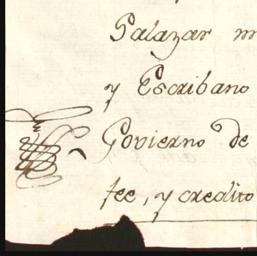 Salazar
y Escribano
Govierno de
fee, y credito